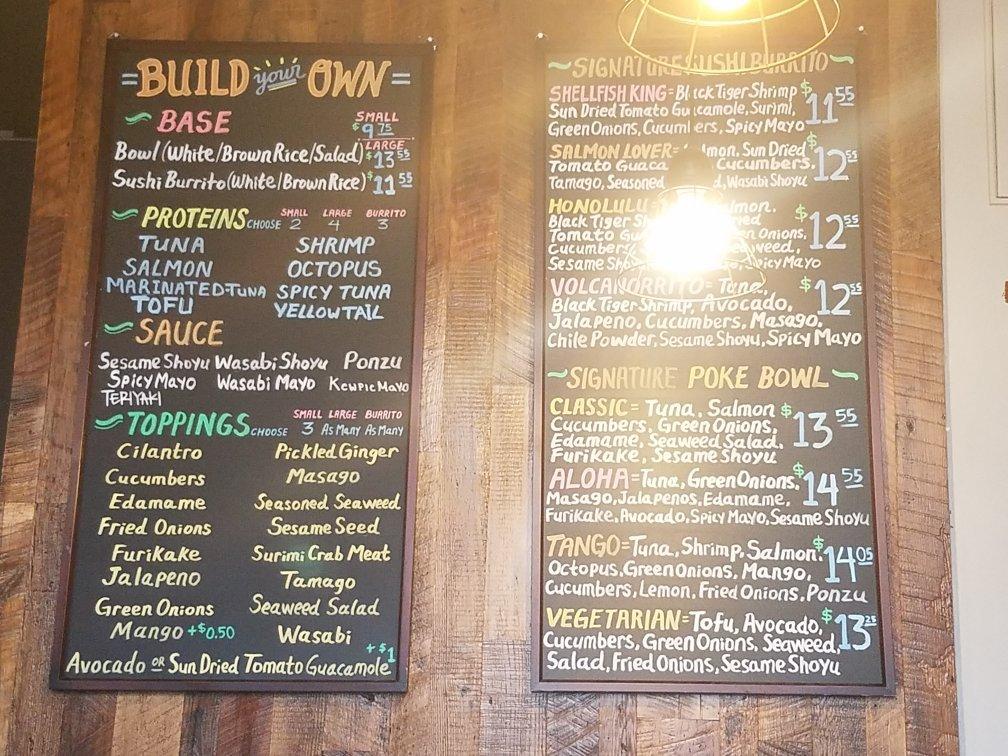 BUILD your OWN
BASE
SMALL
$9.75
Bowl (White/Brown Rice/Salad) LARGE $13.55
Sushi Burrito (White/Brown Rice) $11.55
PROTEINS CHOOSE SMALL 2 LARGE 4 BURRITO 3
TUNA SHRIMP
SALMON OCTOPUS
MARINATED TUNA SPICY TUNA
TOFU YELLOWTAIL
SAUCE
Sesame Shoyu Wasabi Shoyu Ponzu
Spicy Mayo Wasabi Mayo Kewpie Mayo
TERIYAKI
TOPPINGS CHOOSE SMALL 3 LARGE As Many BURRITO As Many
Cilantro Pickled Ginger
Cucumbers Masago
Edamame Seasoned Seaweed
Fried Onions Sesame Seed
Furikake Surimi Crab Meat
Jalapeno Tamago
Green Onions Seaweed Salad
Mango +$0.50 Wasabi
Avocado OR Sun Dried Tomato Guacamole +$1
SIGNATURE SUSHI BURRITO
SHELLFISH KING = Black Tiger Shrimp $11.55
Sun Dried Tomato Guacamole, Surimi,
Green Onions, Cucumbers, Spicy Mayo
SALMON LOVER = Salmon, Sun Dried $12.55
Tomato Cucumbers,
Tamago, Seasoned Wasabi Shoyu
HONOLULU Salmon, $12.55
Black Tiger
Tomato Onions,
Cucumbers
Sesame Spicy Mayo
VOLCANORRITO = Tuna, $12.55
Black Tiger Shrimp, Avocado,
Jalapeno, Cucumbers, Masago,
Chile Powder, Sesame Shoyu, Spicy Mayo
SIGNATURE POKE BOWL
CLASSIC = Tuna, Salmon $13.55
Cucumbers, Green Onions,
Edamame, Seaweed Salad,
Furikake, Sesame Shoyu
ALOHA = Tuna, Green Onions, $14.55
Masago, Jalapenos, Edamame,
Furikake, Avocado, Spicy Mayo, Sesame Shoyu
TANGO = Tuna, Shrimp, Salmon, $14.05
Octopus, Green Onions, Mango,
Cucumbers, Lemon, Fried Onions, Ponzu
VEGETARIAN = Tofu, Avocado, $13.25
Cucumbers, Green Onions, Seaweed,
Salad, Fried Onions, Sesame Shoyu